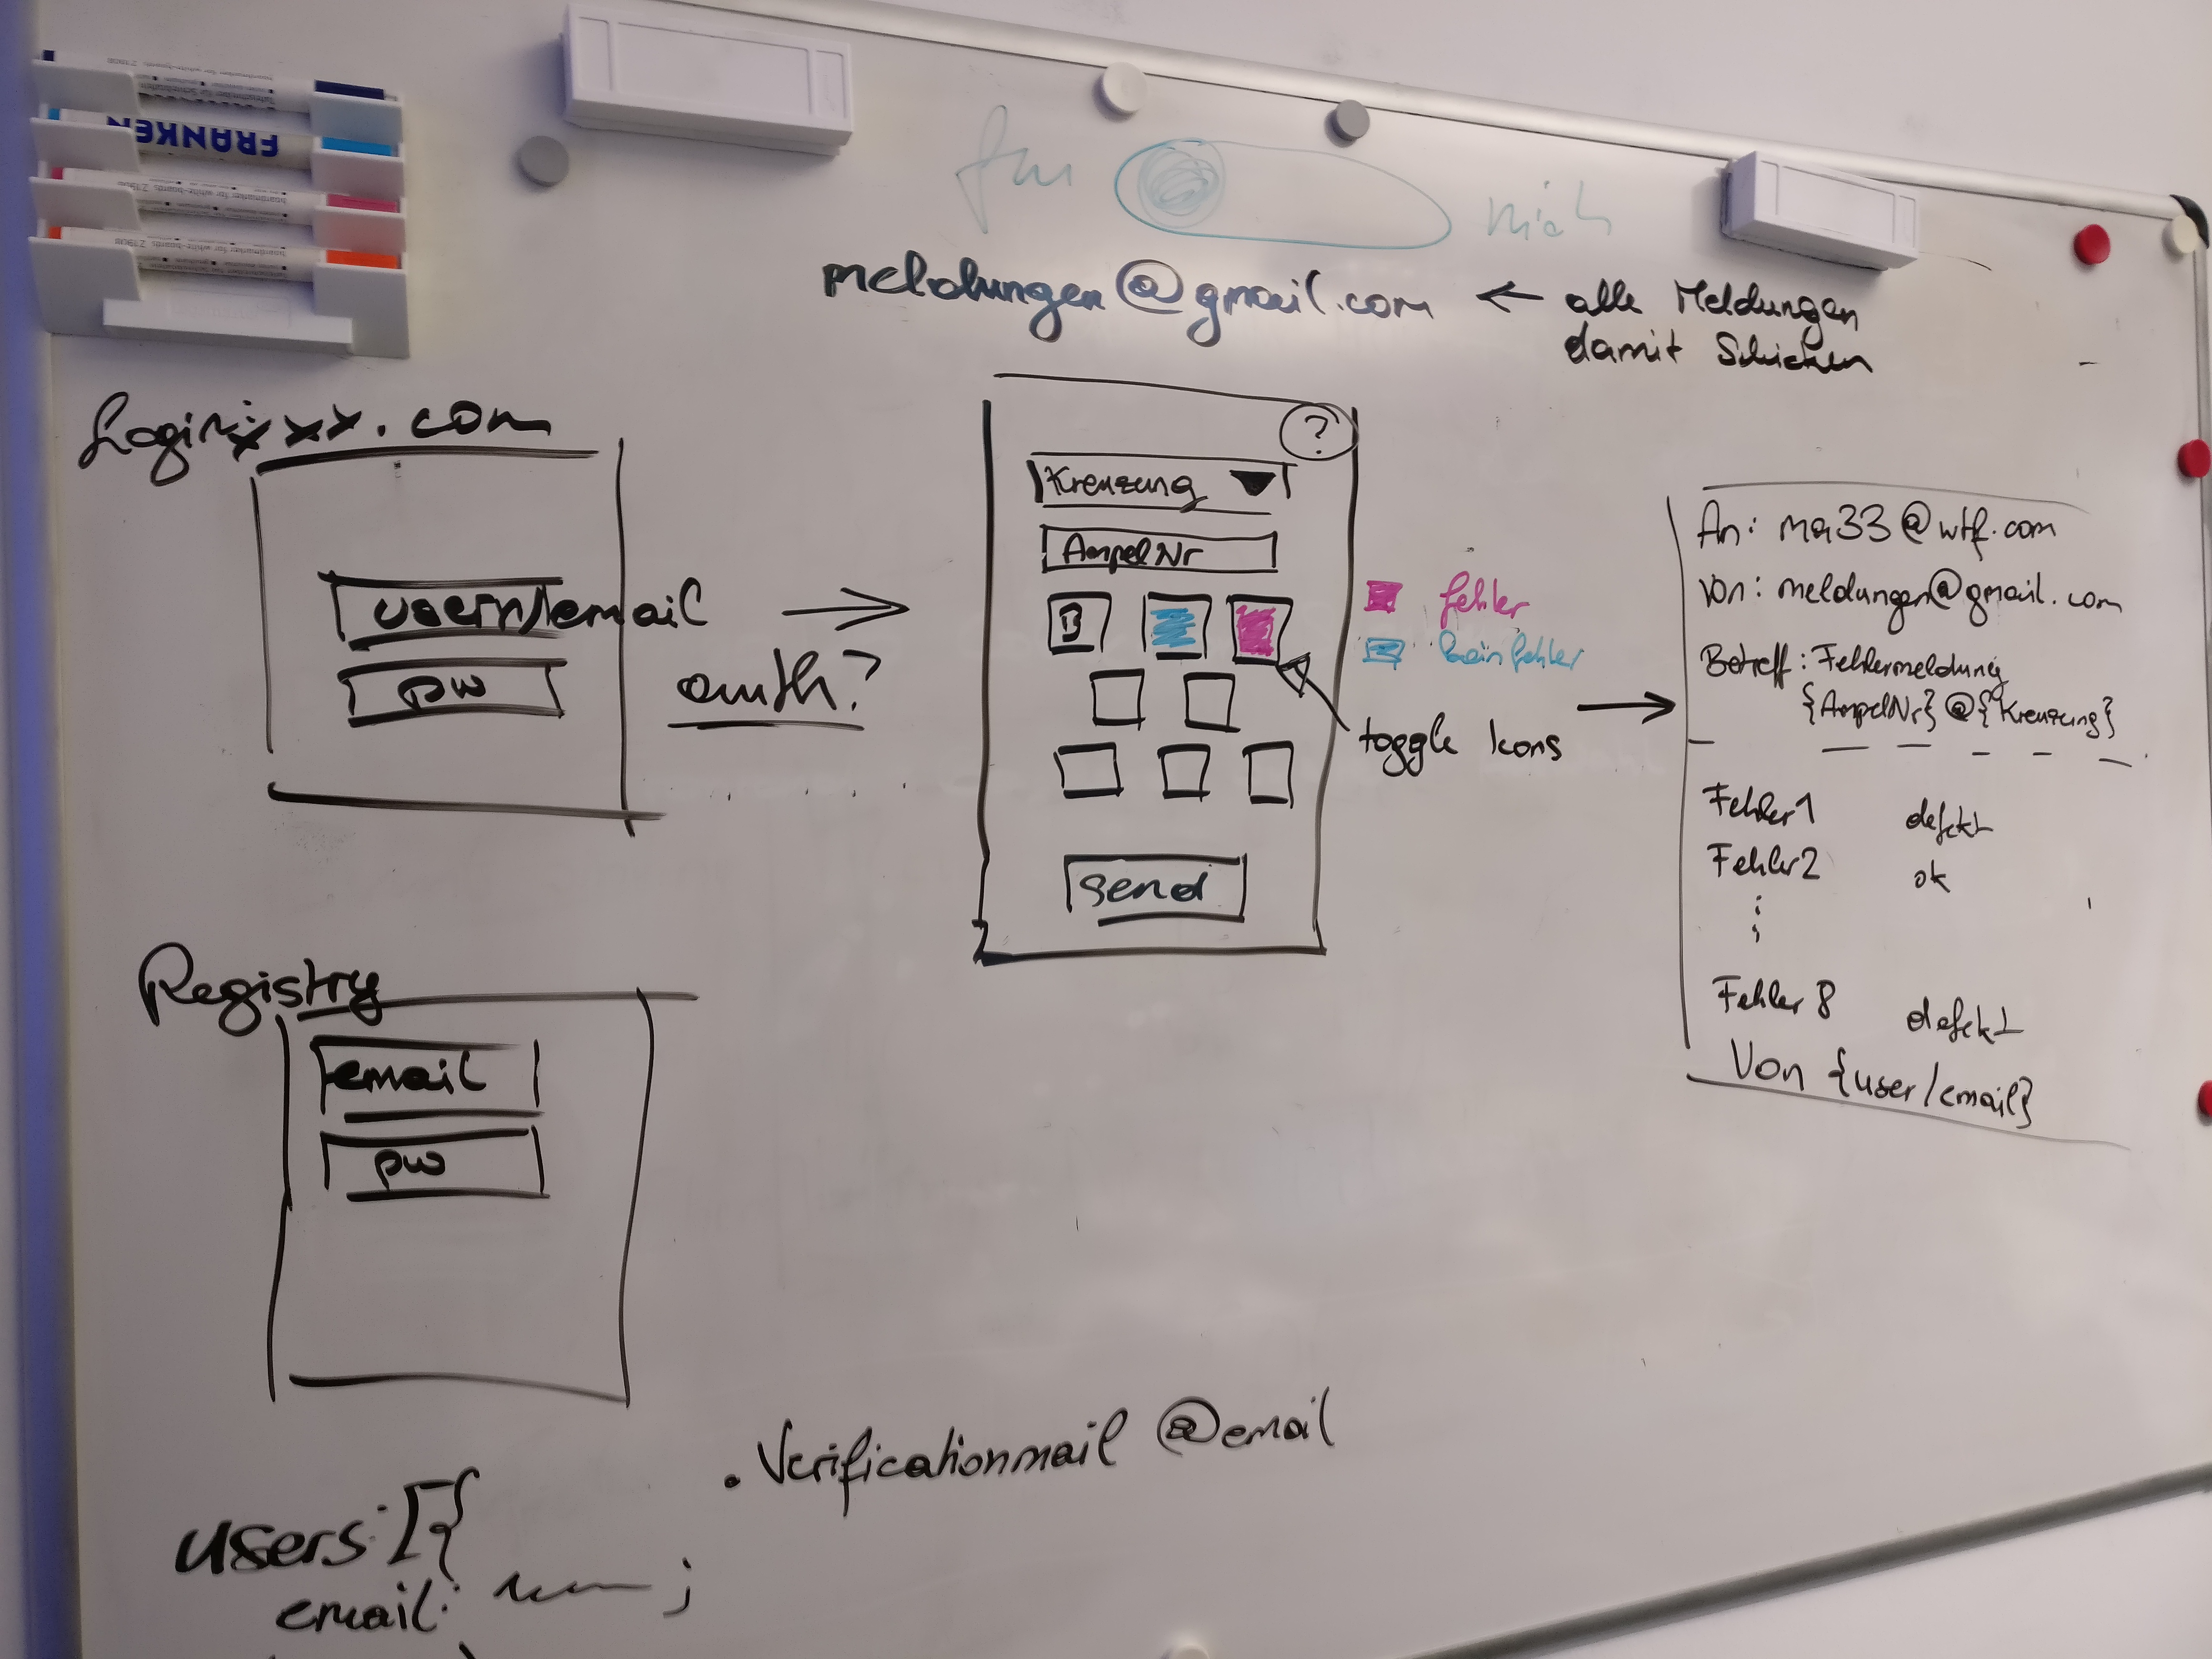 FRANKEN
meldungen@gmail.com ← alle Meldungen
damit Schicken
Login: xxx.com
usern/email
pw
→
auth?
?
Kreuzung ▼
AmpelNr
B
Fehler
kein Fehler
toggle Icons
send
→
An: ma33@wtf.com
Von: meldungen@gmail.com
Betreff: Fehlermeldung
{AmpelNr}@{Kreuzung}
Fehler 1 defekt
Fehler 2 ok
Fehler 8 defekt
Von {user/email}
Registry
email
pw
. Verificationmail @email
users: [{
email: ;